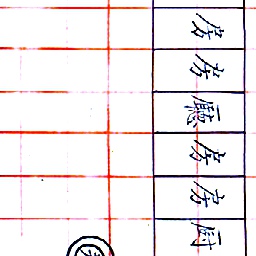 房
房
廳
房
房
厨